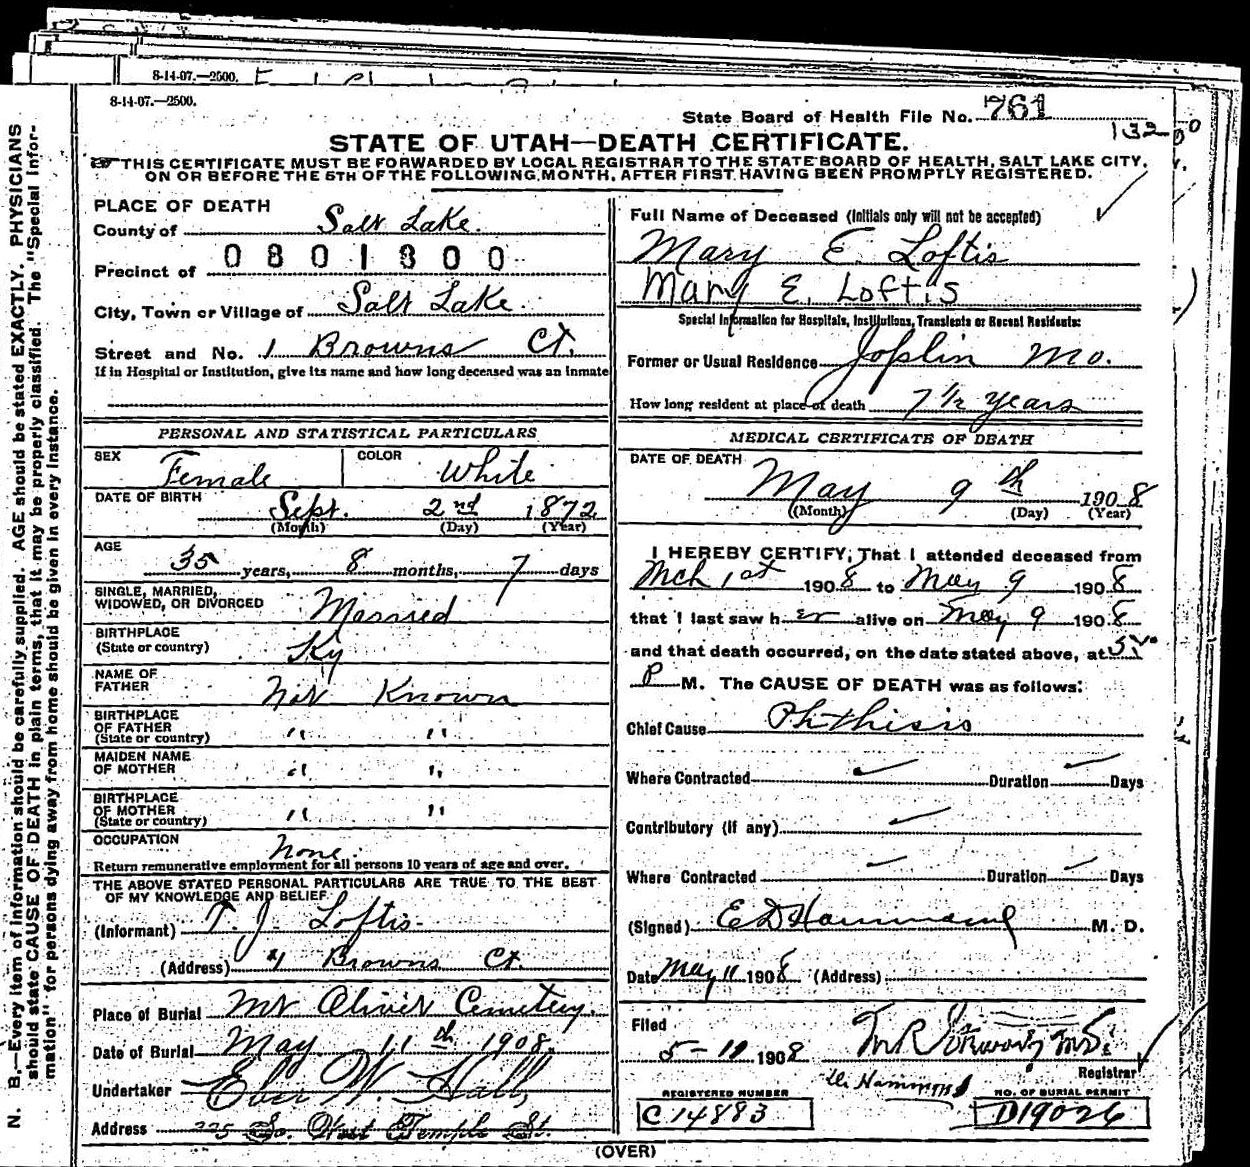 8-14-07.—2500.
8-14-07.—2500.
State Board of Health File No. 761
132
STATE OF UTAH—DEATH CERTIFICATE.
THIS CERTIFICATE MUST BE FORWARDED BY LOCAL REGISTRAR TO THE STATE BOARD OF HEALTH, SALT LAKE CITY,
ON OR BEFORE THE 5TH OF THE FOLLOWING MONTH, AFTER FIRST HAVING BEEN PROMPTLY REGISTERED.
N. B.—Every item of information should be carefully supplied. AGE should be stated EXACTLY. PHYSICIANS
should state CAUSE OF DEATH in plain terms, that it may be properly classified. The "Special Infor-
mation" for persons dying away from home should be given in every instance.
PLACE OF DEATH
County of Salt Lake.
0801300
Precinct of
City, Town or Village of Salt Lake
Street and No. 1 Browns Ct.
If in Hospital or Institution, give its name and how long deceased was an inmate
PERSONAL AND STATISTICAL PARTICULARS
SEX Female COLOR White
DATE OF BIRTH
Sept. 2nd 1872
(Month) (Day) (Year)
AGE
35 years, 8 months, 7 days
SINGLE, MARRIED,
WIDOWED, OR DIVORCED Married
BIRTHPLACE
(State or country) Ky
NAME OF
FATHER Not Known
BIRTHPLACE
OF FATHER
(State or country) " "
MAIDEN NAME
OF MOTHER " "
BIRTHPLACE
OF MOTHER
(State or country) " "
OCCUPATION None
Return remunerative employment for all persons 10 years of age and over.
THE ABOVE STATED PERSONAL PARTICULARS ARE TRUE TO THE BEST
OF MY KNOWLEDGE AND BELIEF
(Informant) T. J. Loftis
(Address) Browns Ct.
Place of Burial Mt Olivet Cemetery.
Date of Burial May 11th 1908
Undertaker Eber W. Hall
Address 225 So. West Temple St.
Full Name of Deceased (Initials only will not be accepted)
Mary E. Loftis
Mary E. Loftis
Special Information for Hospitals, Institutions, Transients or Recent Residents:
Former or Usual Residence Joplin Mo.
How long resident at place of death 7 1/2 years
MEDICAL CERTIFICATE OF DEATH
DATE OF DEATH
May 9th 1908
(Month) (Day) (Year)
I HEREBY CERTIFY, That I attended deceased from
Mch 1st 1908 to May 9 1908
that I last saw her alive on May 9 1908
and that death occurred, on the date stated above, at
P M. The CAUSE OF DEATH was as follows:
Chief Cause Phthisis
Where Contracted Duration Days
Contributory (if any)
Where Contracted Duration Days
(Signed) E D Hammond M. D.
Date May 11 1908 (Address)
Filed
5-11 1908
Registrar
Hammond
REGISTERED NUMBER NO. OF BURIAL PERMIT
C14883 D19026
(OVER)